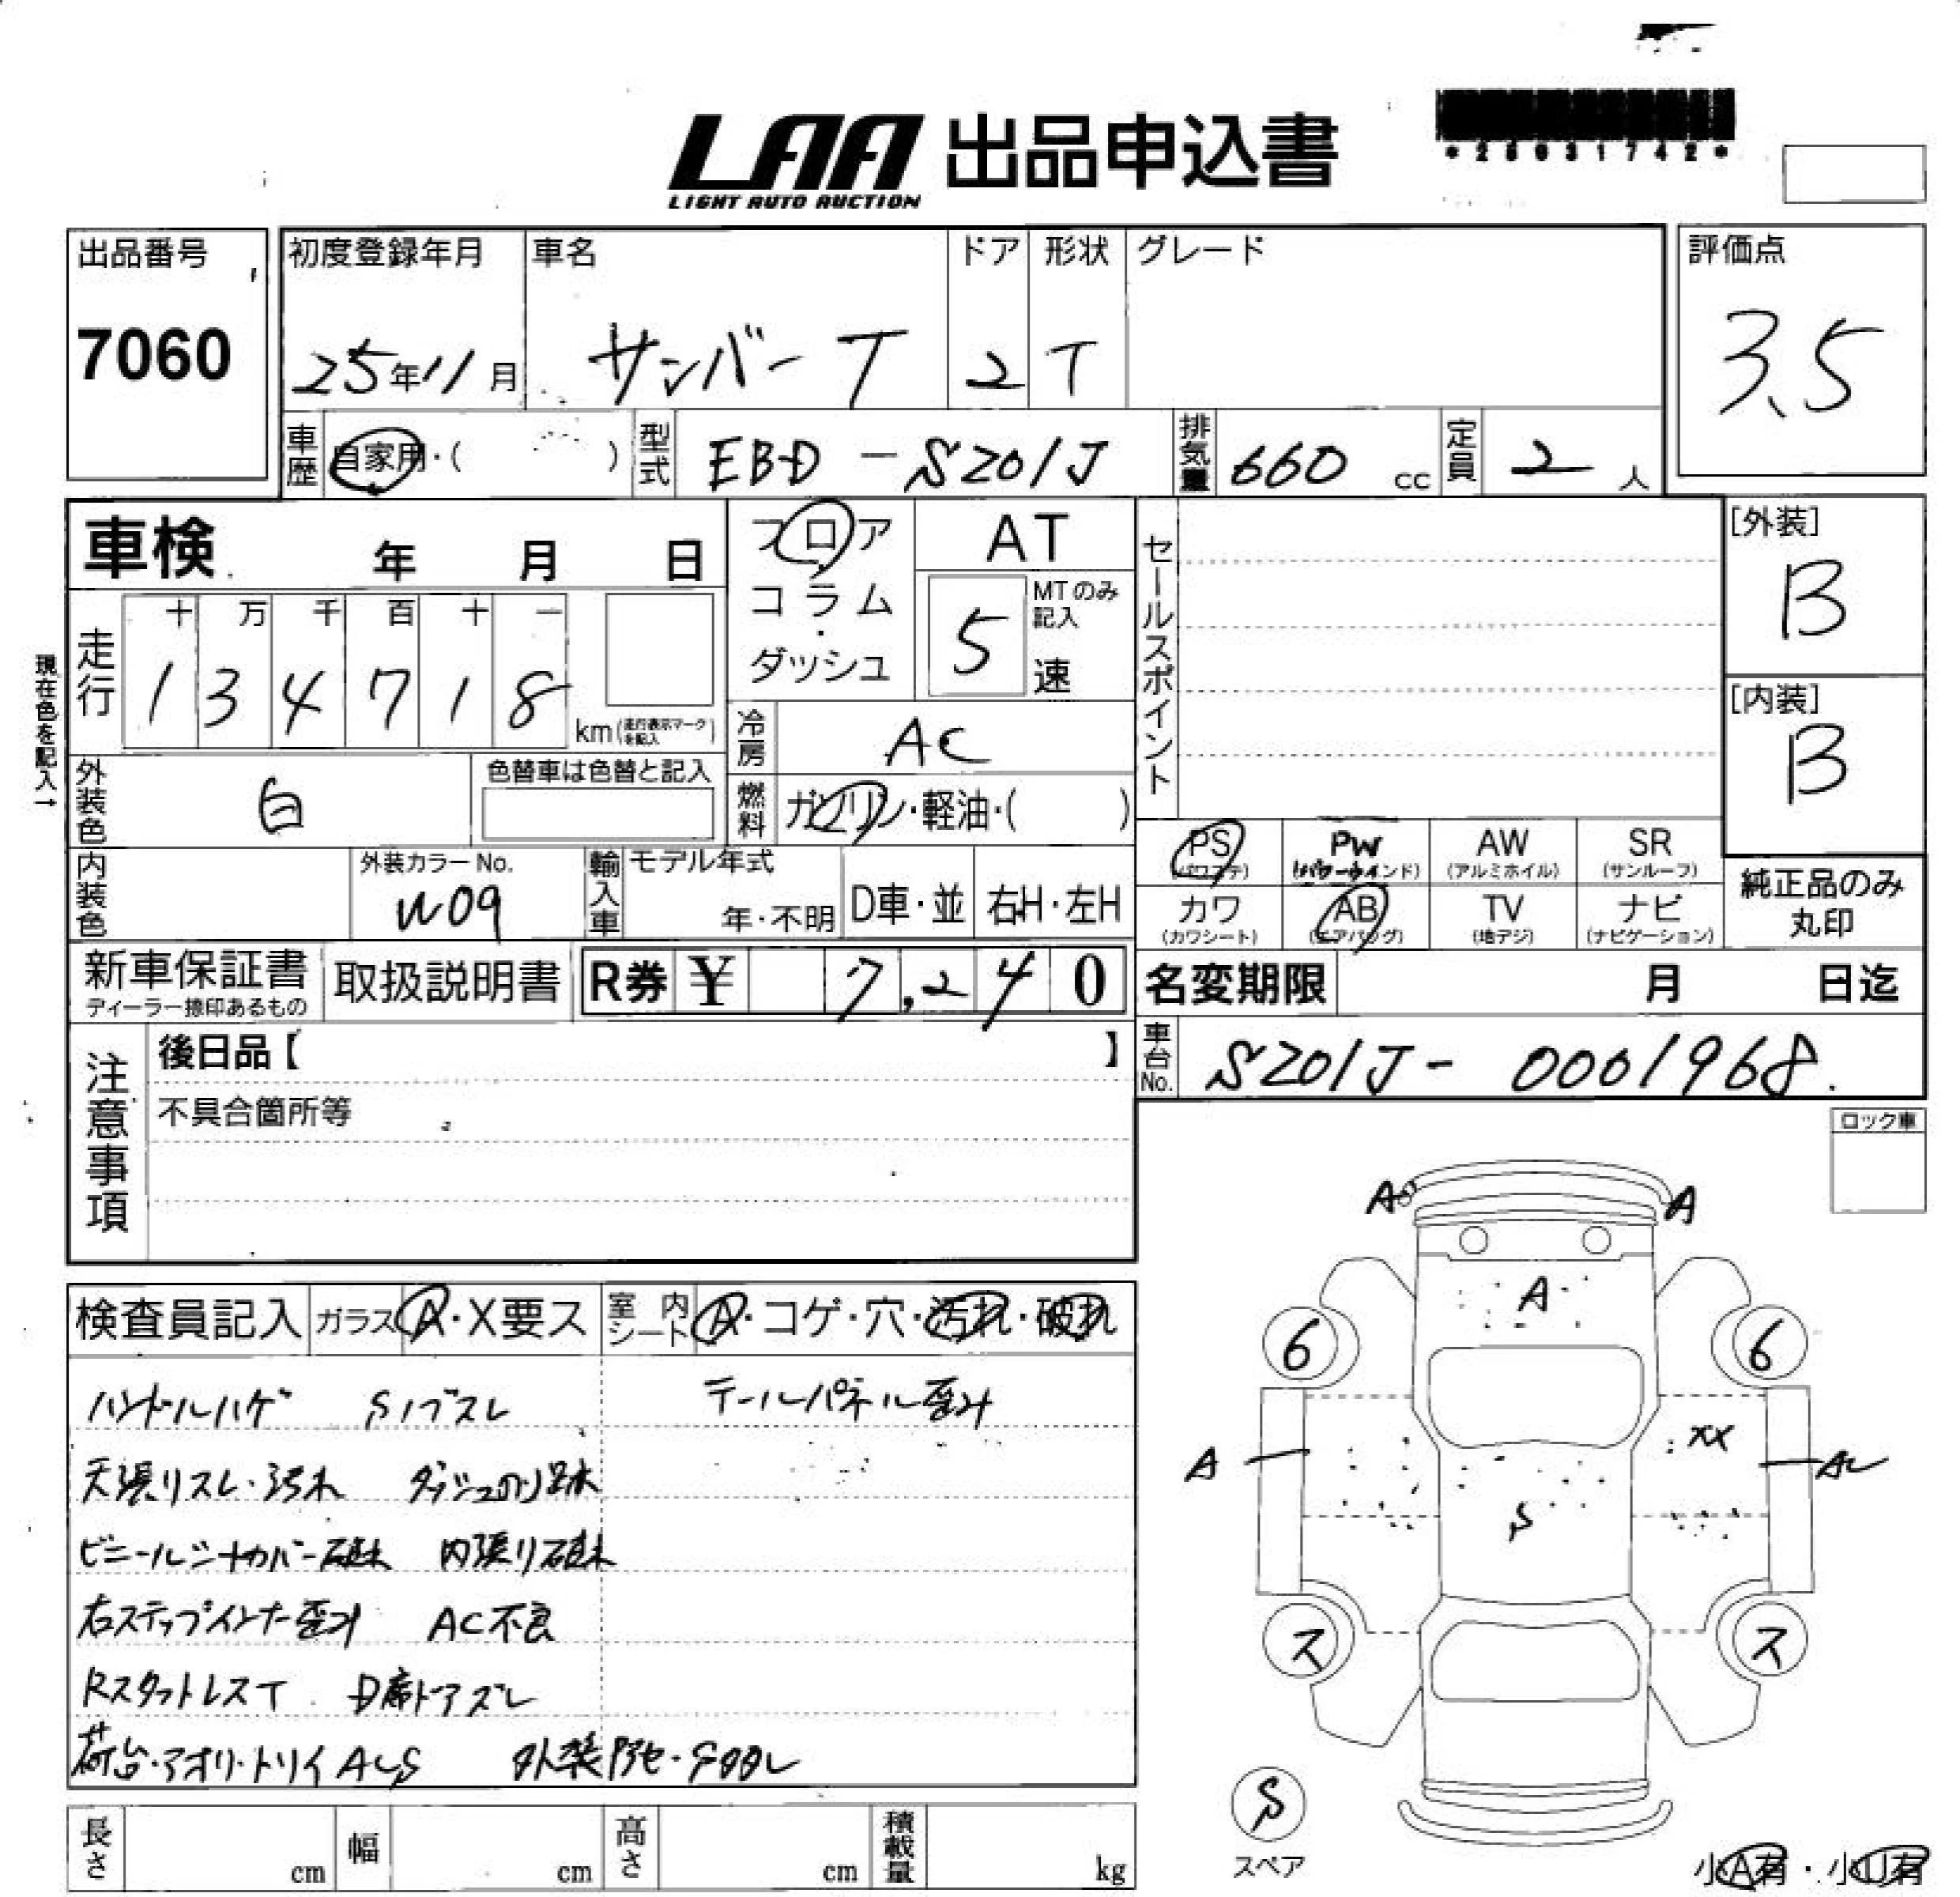 LAA 出品申込書
LIGHT AUTO AUCTION
*28031742*
出品番号
7060
初度登録年月
25年11月
車名
サンバーT
ドア
2
形状
T
グレード
評価点
3.5
車歴 自家用・( )
型式 EBD-S201J
排気量 660 cc
定員 2 人
車検 年 月 日
フロア
コラム
・
ダッシュ
AT
MTのみ記入
5 速
セールスポイント
[外装]
B
[内装]
B
現在色を記入→
走行
十 万 千 百 十 一
1 3 4 7 1 8 km (走行表示マークを記入)
冷房 AC
外装色 白
色替車は色替と記入
燃料 ガソリン・軽油・( )
内装色
外装カラーNo.
W09
輸入車
モデル年式
年・不明
D車・並
右H・左H
PS (パワステ)
PW (パワーウインド)
AW (アルミホイル)
SR (サンルーフ)
カワ (カワシート)
AB (エアバッグ)
TV (地デジ)
ナビ (ナビゲーション)
純正品のみ
丸印
新車保証書
ディーラー捺印あるもの
取扱説明書
R券 ¥ 7,240
名変期限 月 日迄
車台No. S201J-0001968
注意事項
後日品【 】
不具合箇所等
ロック車
検査員記入 ガラス A・X要ス 室内シート A・コゲ・穴・汚れ・破れ
ハンドルハゲ Sノブスレ テールパネル歪み
天張りスレ・汚れ ダッシュのり跡
ビニールシートカバー破れ 内張り破れ
右ステップインナー歪み AC不良
RスタットレスT D席ドアズレ
荷台・アオリ・トリイAUS
A A
A
6 6
XX
A AU
S
ス ス
S
スペア
小A有・小U有
長さ cm
幅 cm
高さ cm
積載量 kg